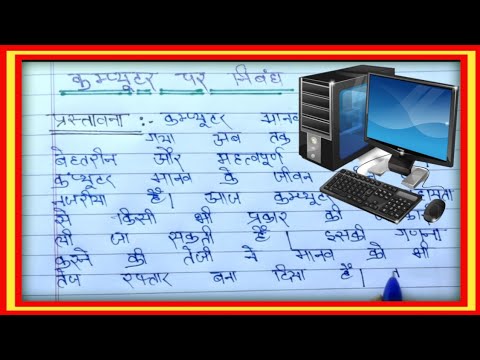 कम्प्यूटर पर निबंध
प्रस्तावना :- कम्प्यूटर मानव
गया अब तक
बेहतरीन और महत्वपूर्ण
कंप्यूटर मानव के जीवन
नजरीया है। आज कम्प्यूटर
से किसी भी प्रकार की
ली जा सकती है। इसकी गणना
करने की तेजी ने मानव को भी
तेज रफ्तार बना दिया है।